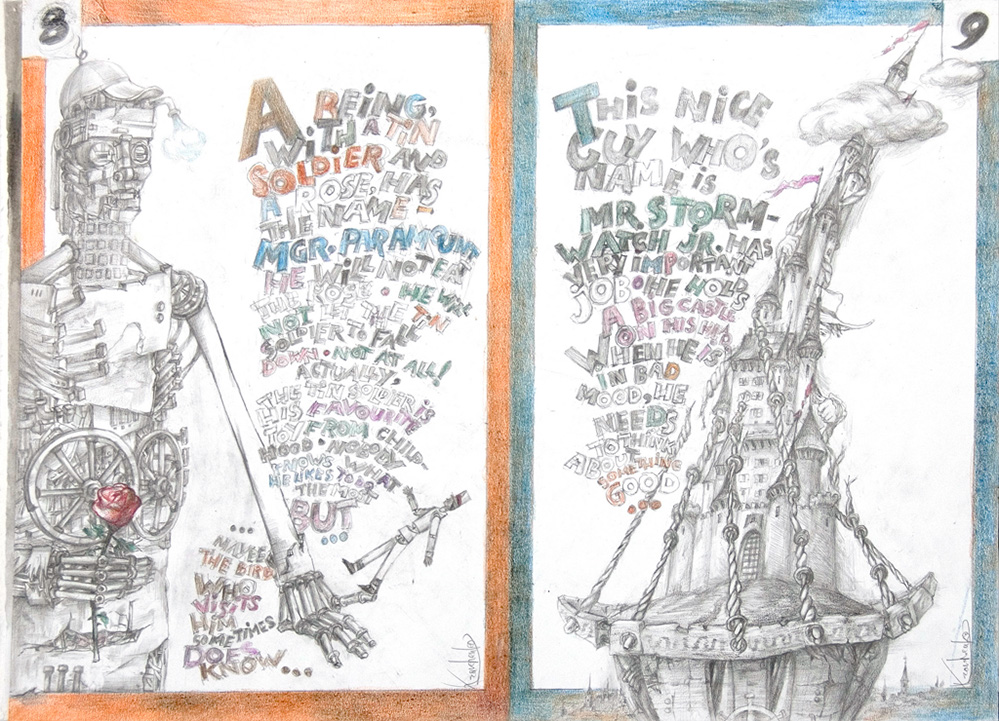 8
A BEING,
WITH A TIN
SOLDIER AND
A ROSE, HAS
THE NAME –
MGR. PARAMOUNT
HE WILL NOT EAT
THE ROSE • HE WILL
NOT LET THE TIN
SOLDIER TO FALL
DOWN • NOT AT ALL!
ACTUALLY,
THE TIN SOLDIER IS
HIS FAVOURITE
TOY FROM CHILD-
HOOD • NOBODY
KNOWS WHAT
HE LIKES TO EAT
THE MOST
BUT
...
...
MAYBE
THE BIRD
WHO
VISITS
HIM
SOMETIMES
DOES
KNOW...
9
THIS NICE
GUY WHO'S
NAME IS
MR. STORM-
WATCH JR. HAS
VERY IMPORTANT
JOB • HE HOLDS
A BIG CASTLE
ON HIS HEAD
WHEN HE IS
IN BAD
MOOD, HE
NEEDS
TO THINK
ABOUT
SOMETHING
GOOD
...